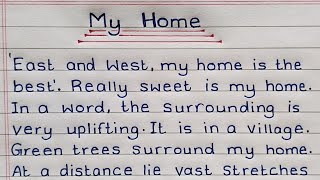 My Home
'East and West, my home is the
best'. Really sweet is my home.
In a word, the surrounding is
very uplifting. It is in a village.
Green trees surround my home.
At a distance lie vast stretches